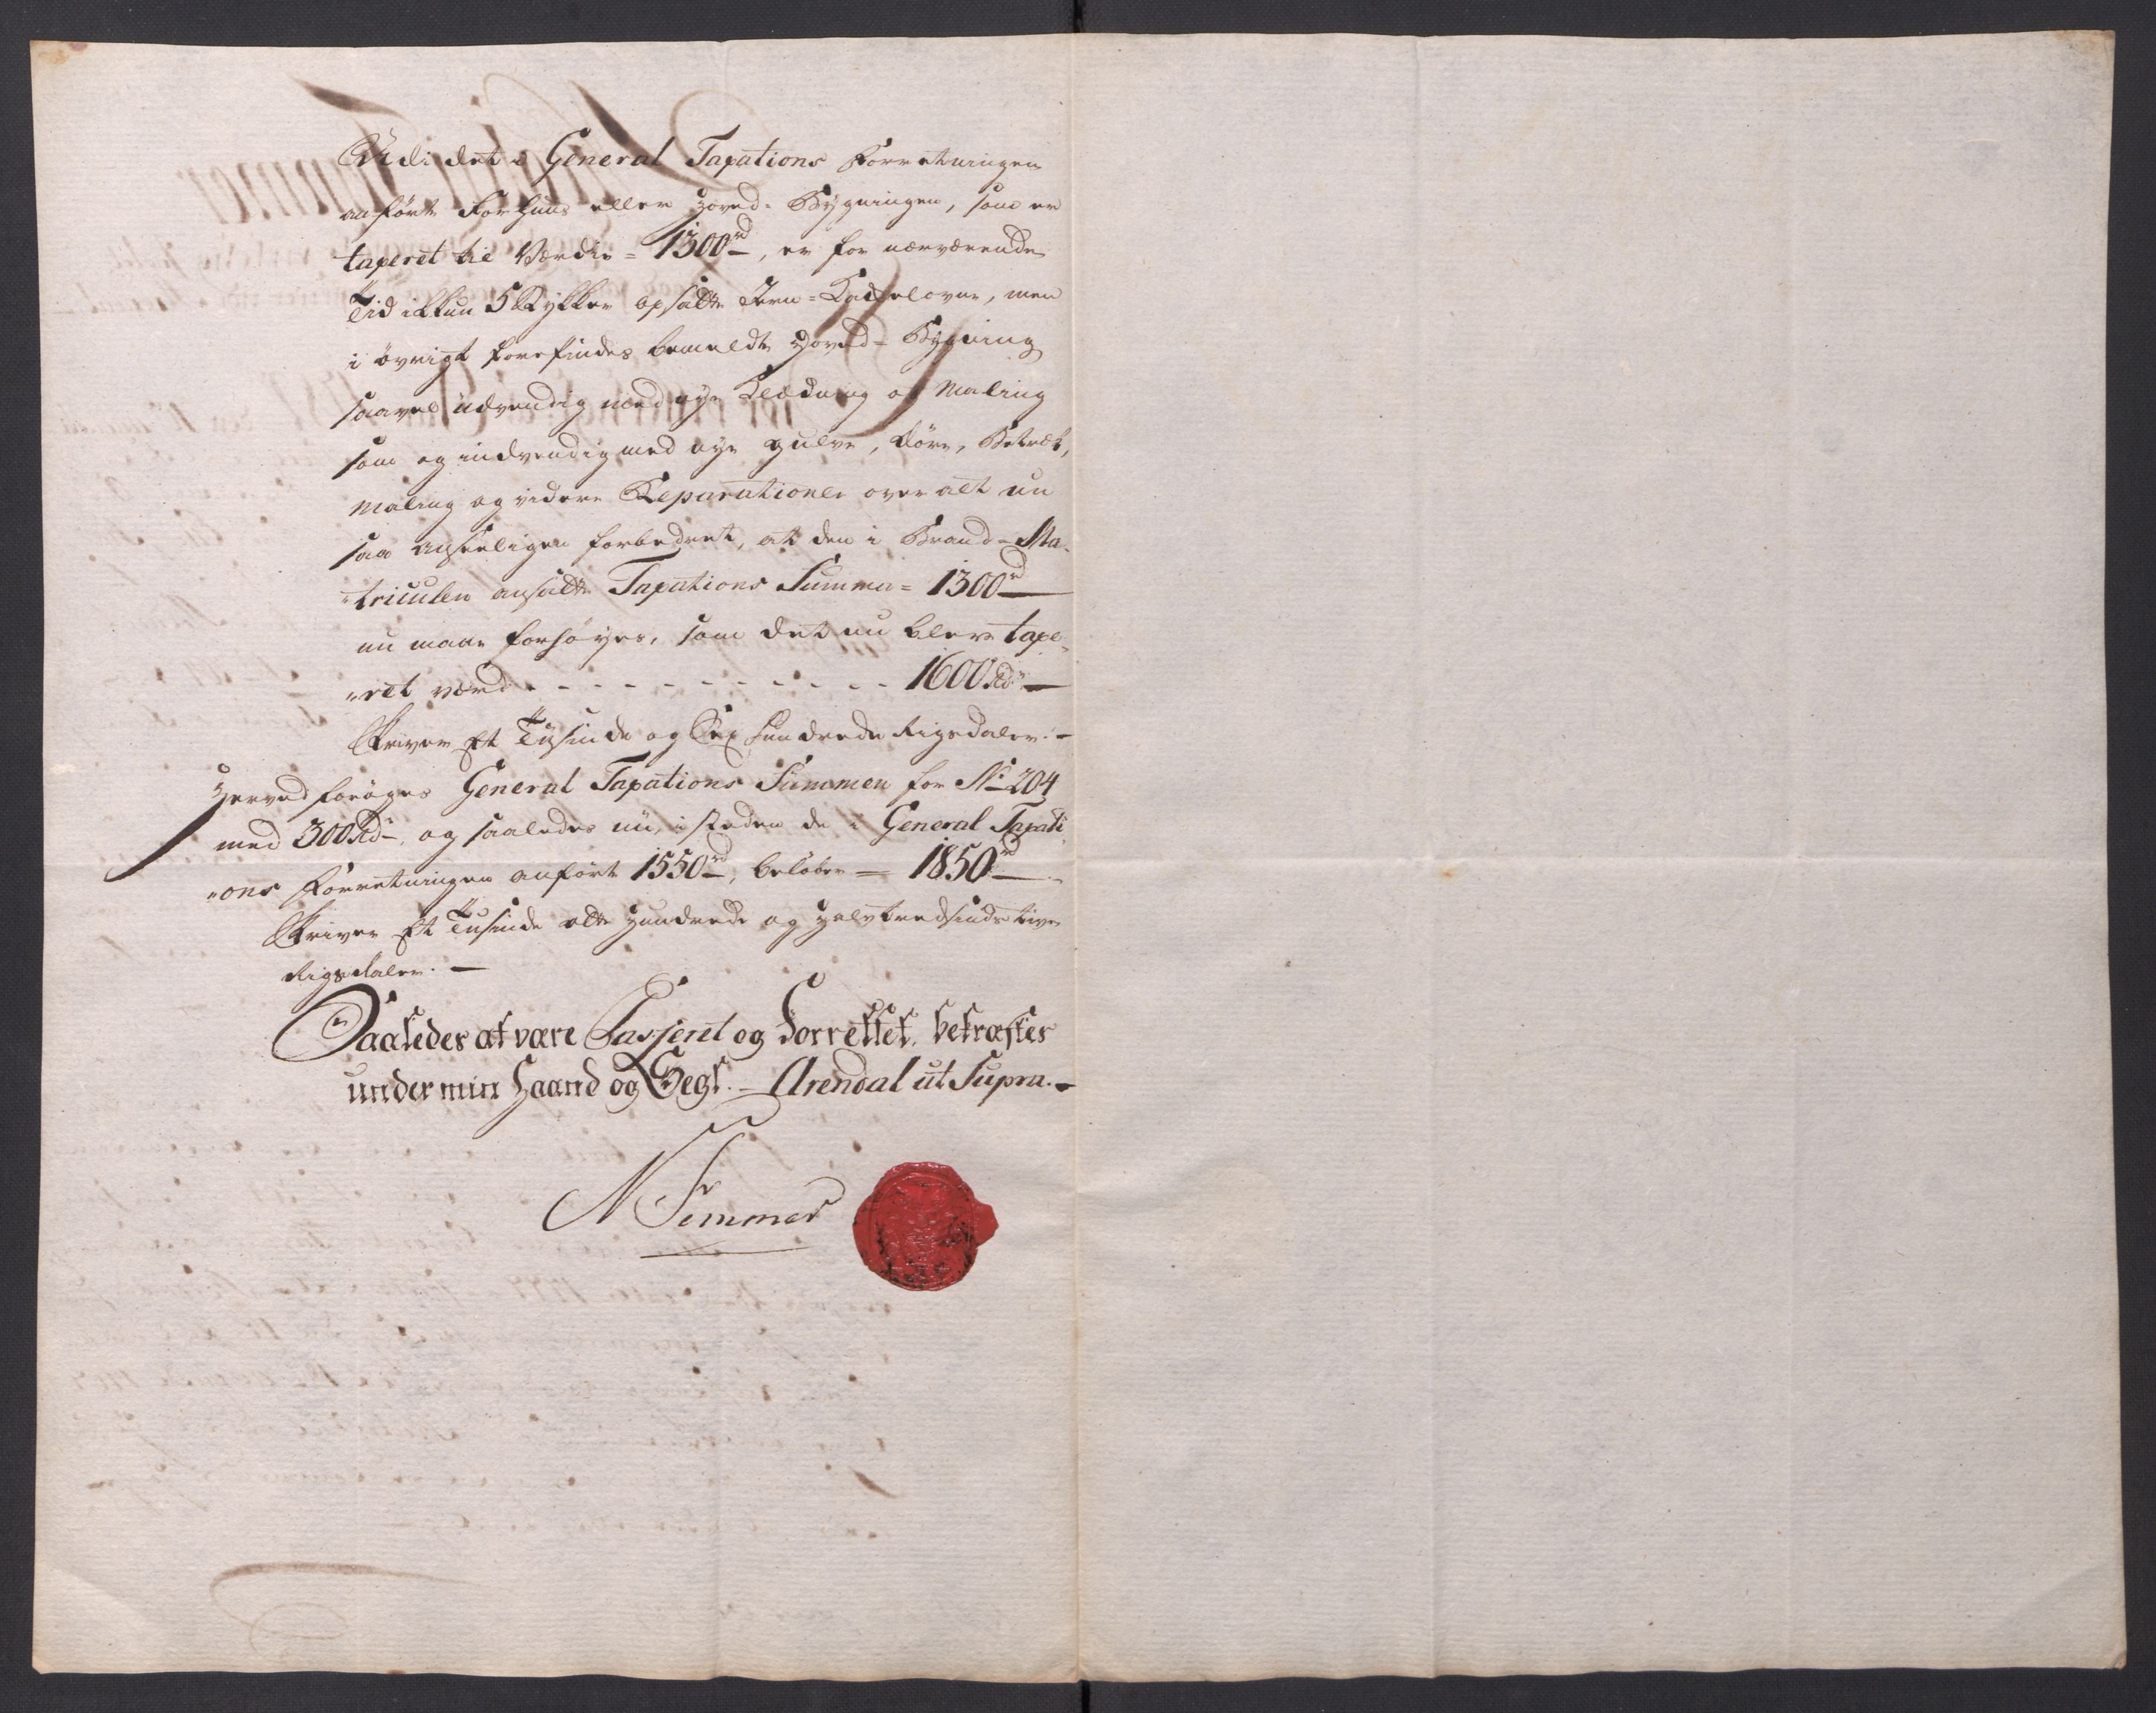 Udi det i General Taxations Forretningen
anførte Forhuus eller Hoved-Bygningen, som er
taxeret til Værdie = 1300 rd, er for nærværende
Tid ikkun 5 Stykker opsadte Jern-Kackelovne, men
i øvrigt forefindes bemeldte Hoved-Bygning
saavel udvendig med nye Klædning og Maling
som og indvendig med nye Gulve, Döre, Betræk,
Maling og videre Reparationer over alt nu
saa anseeligen forbedret, at den i Brand-Ma-
triculen ansadte Taxations Summa = 1300 rd
nu maae forhöyes, som det nu blev taxe-
"ret værd - - - - - - - - - - 1600 Rdr
Skriver Et Tusinde og Sex hundrede Rigsdaler. -
Herved forøges General Taxations Summen for No 204
med 300 Rdr, og saaledes nu, i steden de i General Taxati-
"ons Forretningen anført 1550 rd, beløber = 1850 rd
Skriver Et Tusinde otte Hundrede og Halvtredsindstive
Rigsdaler. -
Saaledes at være Passeret og Forrettet, bekræftes
under min Haand og Segl. - Arendal ut Supra. -
N Semmer